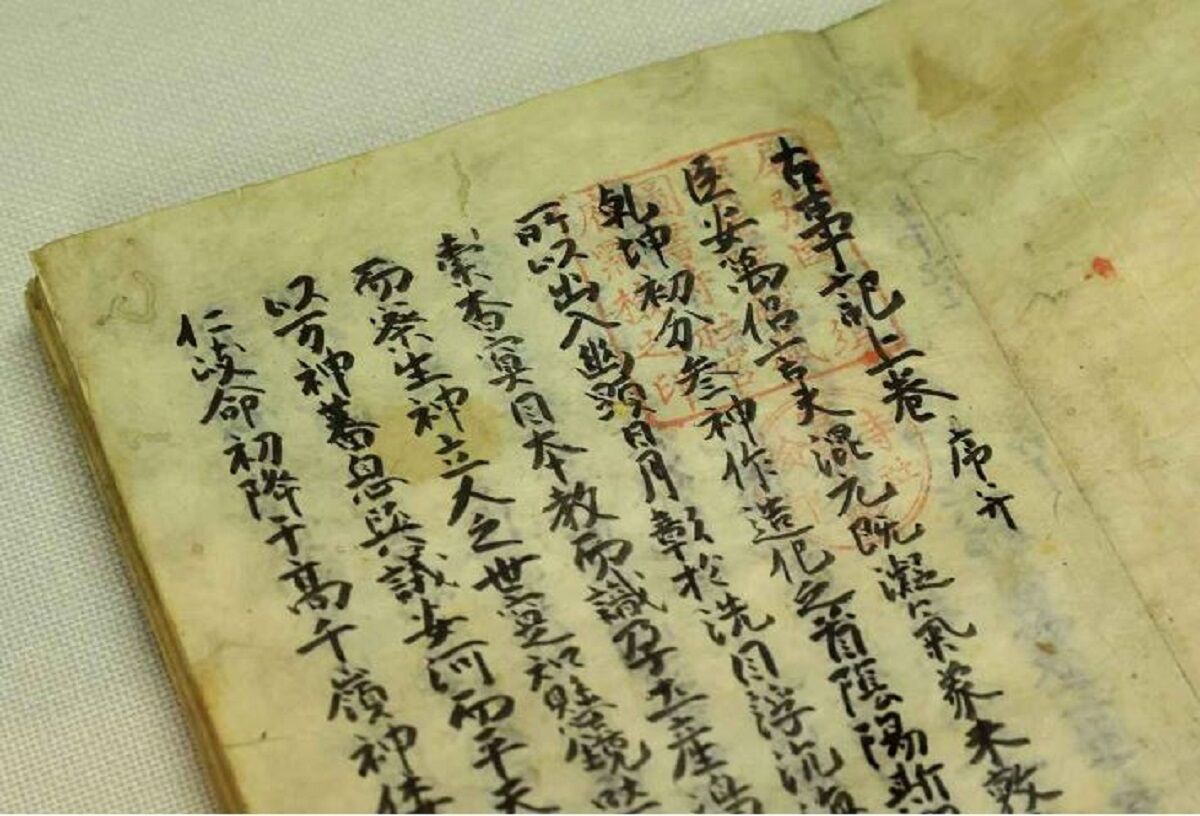 古事記上卷 序并
臣安萬侶言夫混元既凝氣象未敦
乾坤初分叄神作造化之首陰陽斯
所以出入幽顯日月彰於洗目浮沉海
素杳冥目本教而識孕土産嶋
而察生神立人之世寔知懸鏡吐
以万神蕃息與議安河而平天
仁岐命初降于高千嶺神倭